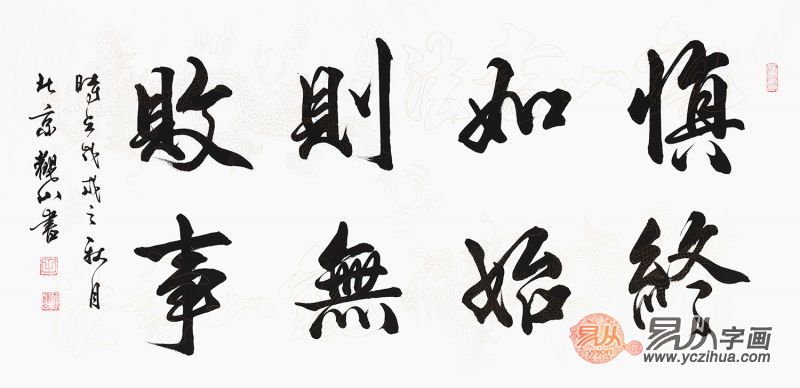 慎終
如始
則無
敗事
時在戊戌之秋月
北京觀山書
易从
易从字画
www.yczihua.com